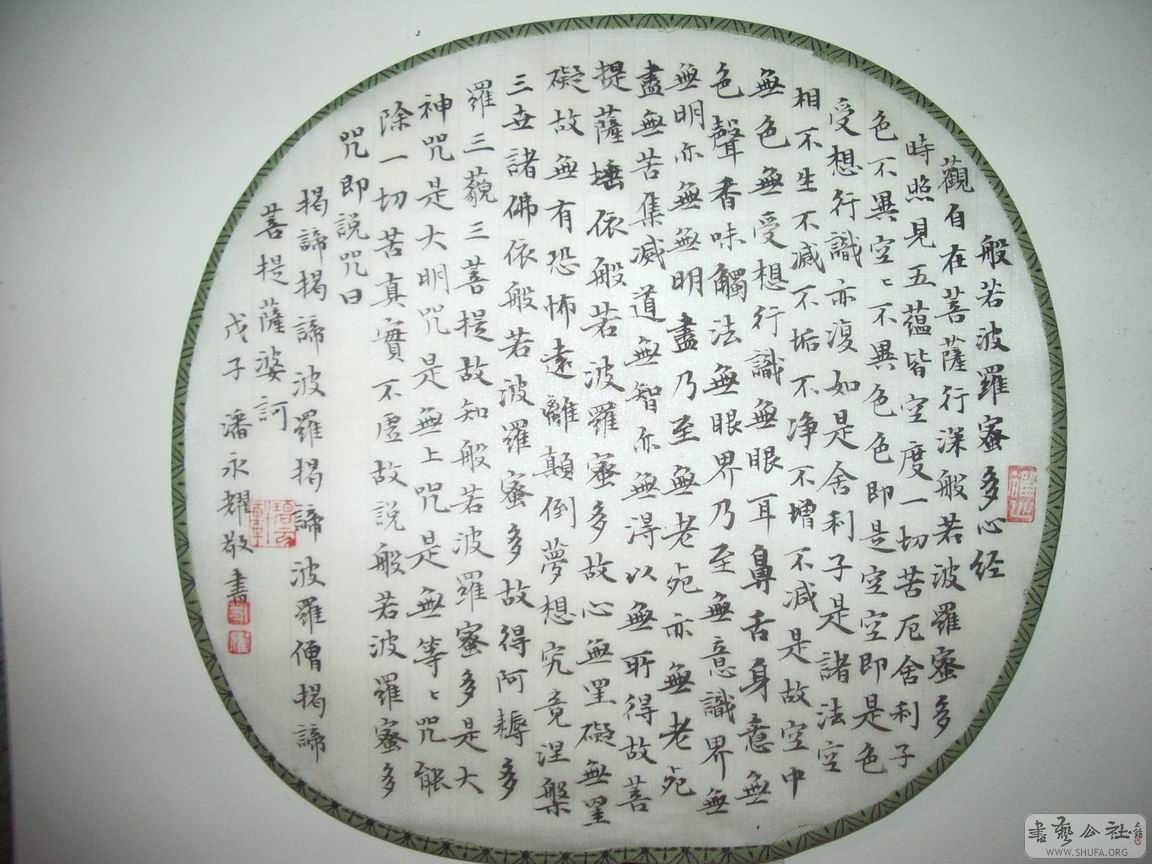 般若波羅蜜多心经
觀自在菩薩行深般若波羅蜜多
時照見五蘊皆空度一切苦厄舍利子
色不異空〻不異色色即是空空即是色
受想行識亦復如是舍利子是諸法空
相不生不滅不垢不净不增不減是故空中
無色無受想行識無眼耳鼻舌身意無
色聲香味觸法無眼界乃至無意識界無
無明亦無無明盡乃至無老死亦無老死
盡無苦集滅道無智亦無得以無所得故菩
提薩埵依般若波羅蜜多故心無罣礙無罣
礙故無有恐怖遠離顛倒夢想究竟涅槃
三世諸佛依般若波羅蜜多故得阿耨多
羅三藐三菩提故知般若波羅蜜多是大
神咒是大明咒是無上咒是無等〻咒能
除一切苦真實不虛故説般若波羅蜜多
咒即説咒曰
揭諦揭諦波羅揭諦波羅僧揭諦
菩提薩婆訶
戊子潘永耀敬書
書藝公社
WWW.SHUFA.ORG